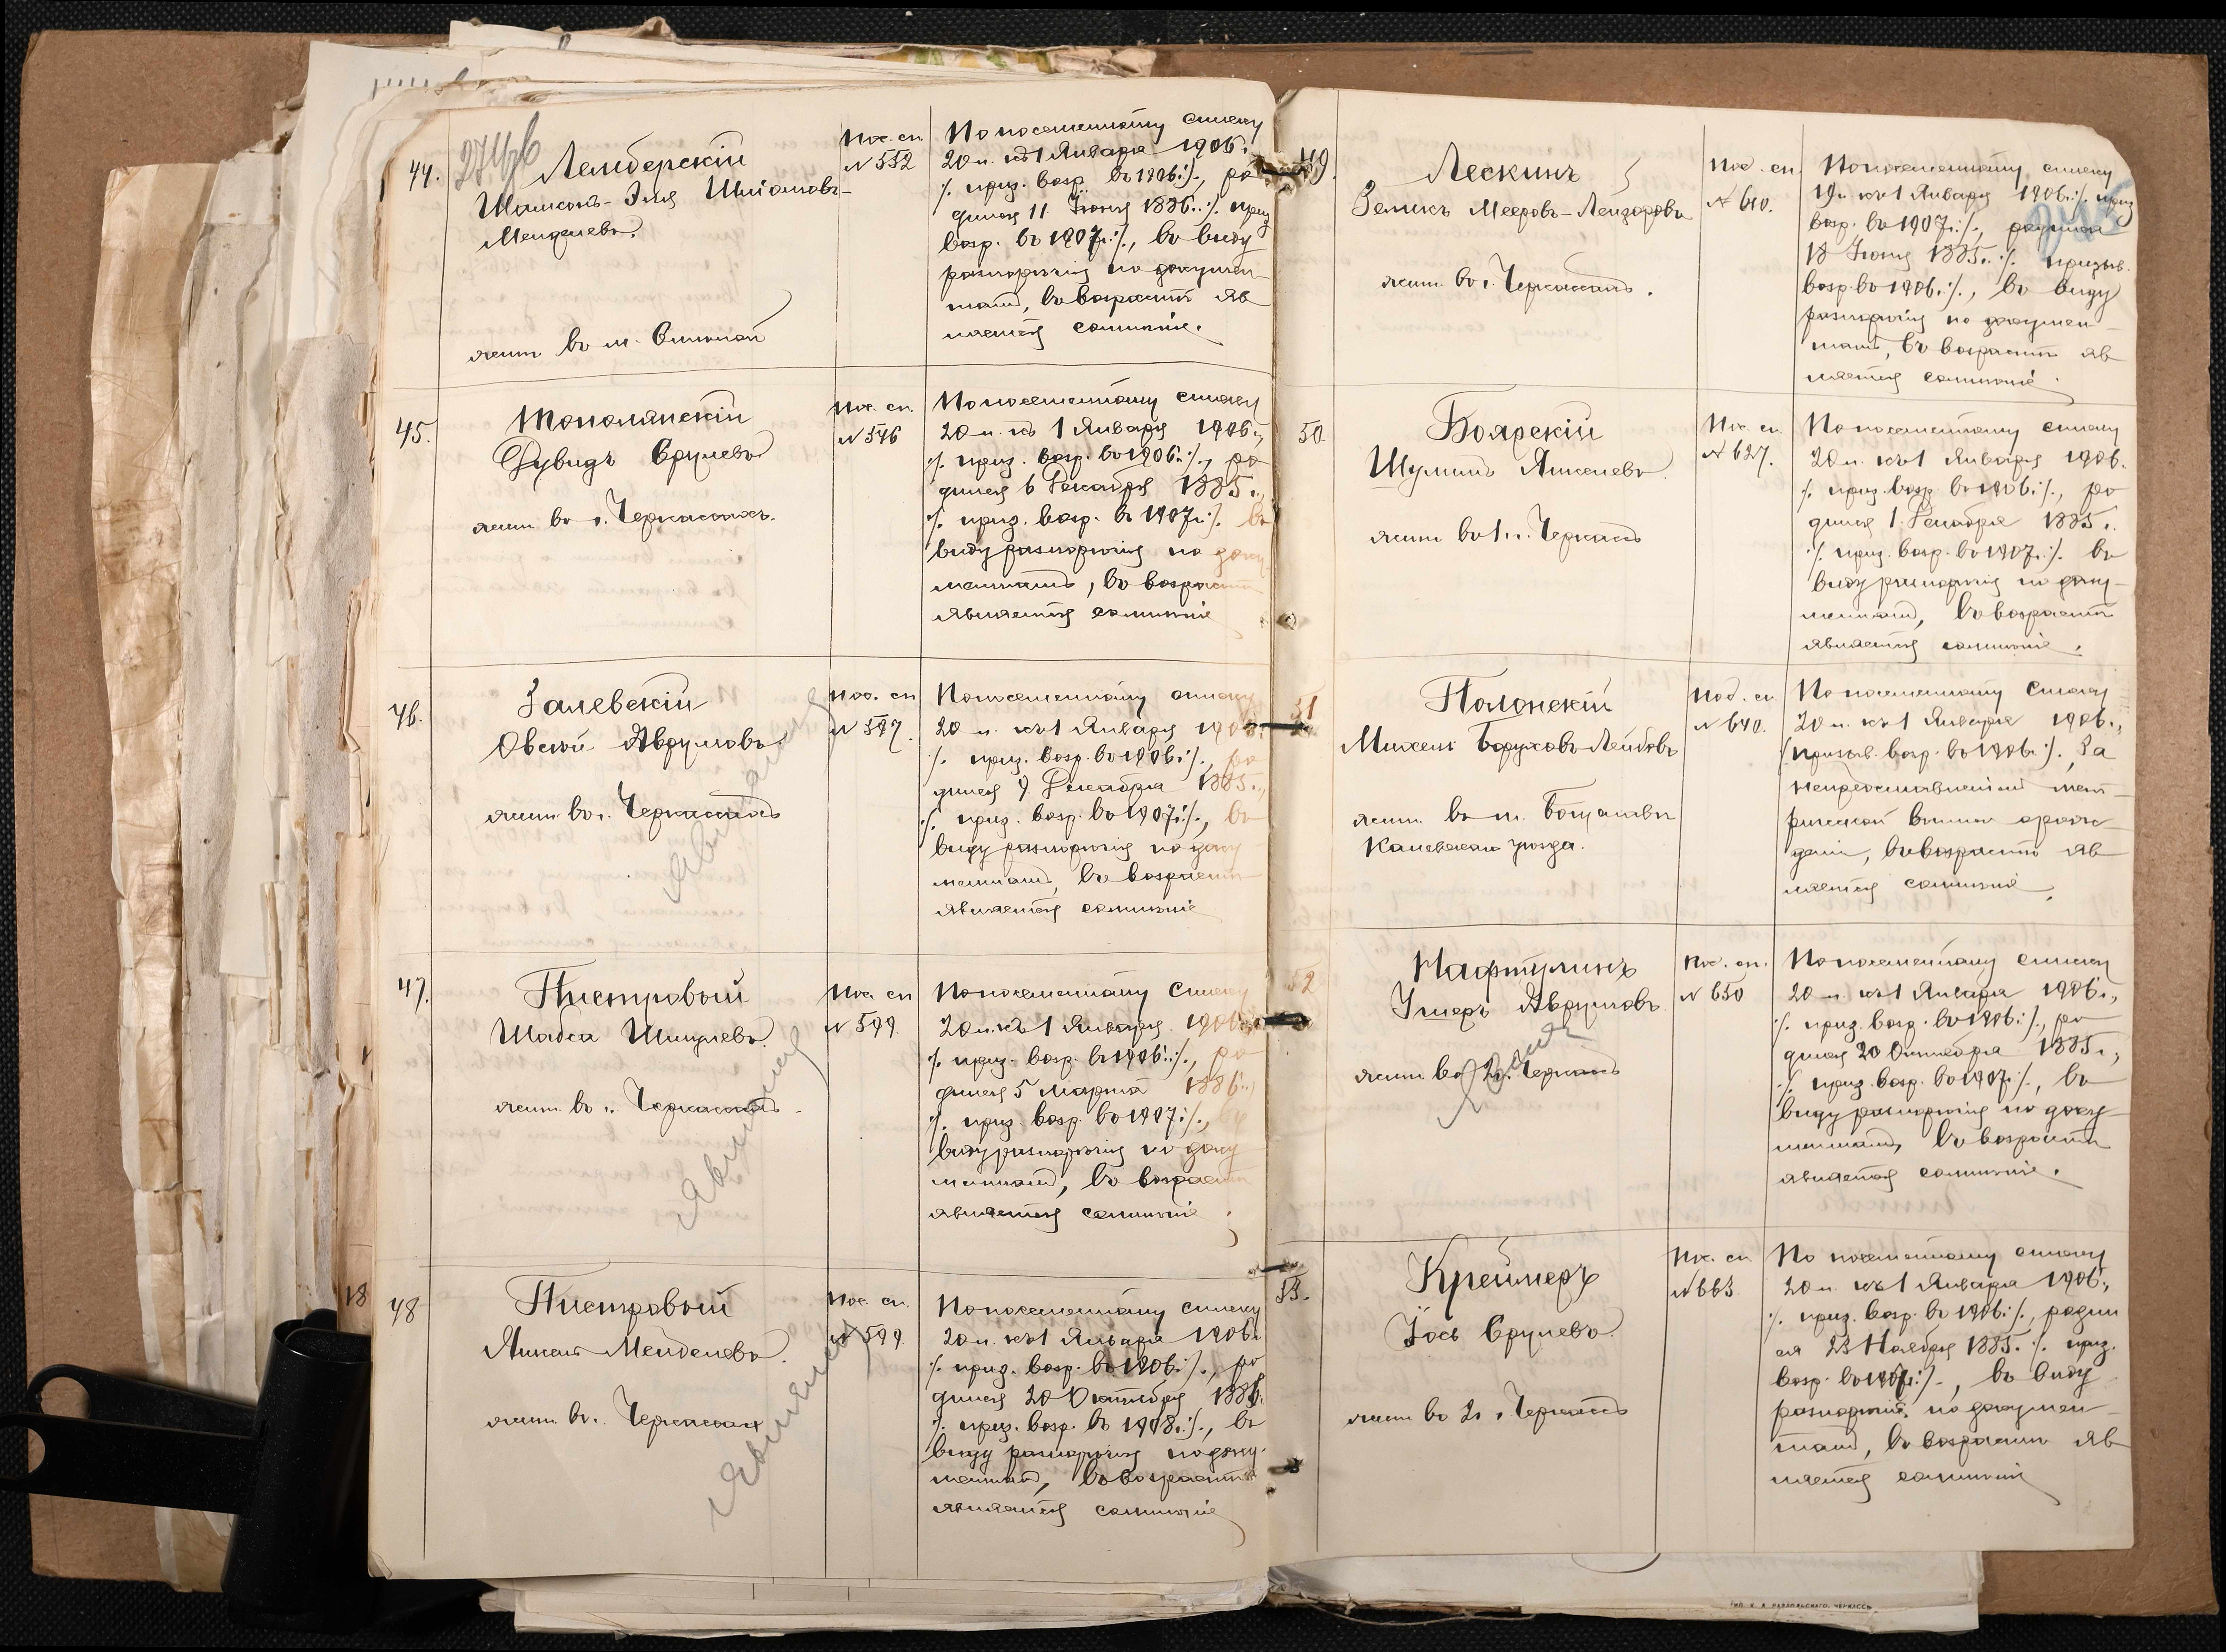 44.
274об
Лемберскій
Шимсонъ-Эля Шміомовъ-
Менделевъ.
жит. въ м. Ольшаной
Пос. сп.
№ 552
По посемейному списку
20 л. къ 1 Января 1906 г.
% приз. возр. въ 1906 г. %, ро
дился 11 Іюня 1886 г. % приз
возр. въ 1907 г. %, въ виду
разнорѣчія по докумен-
тамъ, въ возрастѣ яв
ляется сомнѣніе.
45.
Тополянскій
Дувидъ Срулевъ
жит. въ г. Черкассахъ.
Пос. сп.
№ 546
По посемейному списку
20 л. къ 1 Января 1906 г.,
% приз. возр. въ 1906 г. %, ро
дился 6 Декабря 1885 г.,
% приз. возр. въ 1907 г. % въ
виду разнорѣчія по доку
ментамъ, въ возрастѣ
является сомнѣніе
46.
Залевскій
Овсѣй Аврумовъ
жит. въ г. Черкассахъ
Пос. сп
№ 597.
По посемейному списку
20 л. къ 1 Января 1906 г.
% приз. возр. въ 1906 г. %, ро
дился 9 Декабря 1885 г.,
% приз. возр. въ 1907 г. %, въ
виду разнорѣчія по доку
ментамъ, въ возрастѣ
является сомнѣніе
47.
Пистровый
Шабса Шмулевъ.
жит. въ г. Черкассахъ
Явился
Пос. сп
№ 599.
По посемейному списку
20 л. къ 1 Января 1906 г.
% приз. возр. въ 1906 г. %, ро
дился 5 Марта 1886 г.,
% приз. возр. въ 1907 г. %, въ
виду разнорѣчія по доку
ментамъ, въ возрастѣ
является сомнѣніе.
18
48
Пистровый
Янкель Мейделевъ.
жит. въ г. Черкассахъ
Пос. сп.
№ 599
По посемейному списку
20 л. къ 1 Января 1906 г.
% приз. возр. въ 1906 г. %, ро
дился 20 Октября 1886 г.
% приз. возр. въ 1908 г. %, въ
виду разнорѣчія по доку-
ментамъ, въ возрастѣ
является сомнѣніе
49.
Лескинъ
Зеликъ Мееровъ-Лейзоровъ
жит. въ г. Черкассахъ.
Пос. сп
№ 610.
По посемейному списку
19 л. къ 1 Января 1906 г. % приз
возр. въ 1907 г. %, родился
18 Іюня 1885 г. % призыв.
возр. въ 1906 г. %, въ виду
разнорѣчія по докумен-
тамъ, въ возрастѣ яв
ляется сомнѣніе.
50
Боярскій
Шулимъ Янкелевъ
жит. въ г. Черкассахъ
Пос. сп
№ 627.
По посемейному списку
20 л. къ 1 Января 1906.
% приз. возр. въ 1906 г. %, ро
дился 1 Декабря 1885 г.
% приз. возр. въ 1907 г. % въ
виду разнорѣчія по доку-
ментамъ, въ возрастѣ
является сомнѣніе.
51
Полонскій
Михель Боруховъ-Лейбовъ
жит. въ м.
Каневскаго уѣзда.
Пос. сп
№ 640.
По посемейному списку
20 л. къ 1 Января 1906 г.,
% призыв. возр. въ 1906 г. %, За
непредставленіемъ мет-
рической выписи о рож-
деніи, въ возрастѣ яв
ляется сомнѣніе.
52
Нафтулинъ
Аврумовъ
жит. въ г. Черкассахъ
Пос. сп.
№ 650
По посемейному списку
20 л. къ 1 Января 1906 г.,
% приз. возр. въ 1906 г. %, ро
дился 20 Октября 1885 г.,
% приз. возр. въ 1907 г. %, въ
виду разнорѣчія по доку
ментамъ, въ возрастѣ
является сомнѣніе.
53.
Креймеръ
Іось Срулевъ.
жит. въ г. Черкассахъ
Пос. сп
№ 663
По посемейному списку
20 л. къ 1 Января 1906 г.,
% приз. возр. въ 1906 г. %, родил
ся 23 Ноября 1885 г. % приз.
возр. въ 1907 г. %, въ виду
разнорѣчія по докумен-
тамъ, въ возрастѣ яв
ляется сомнѣніе